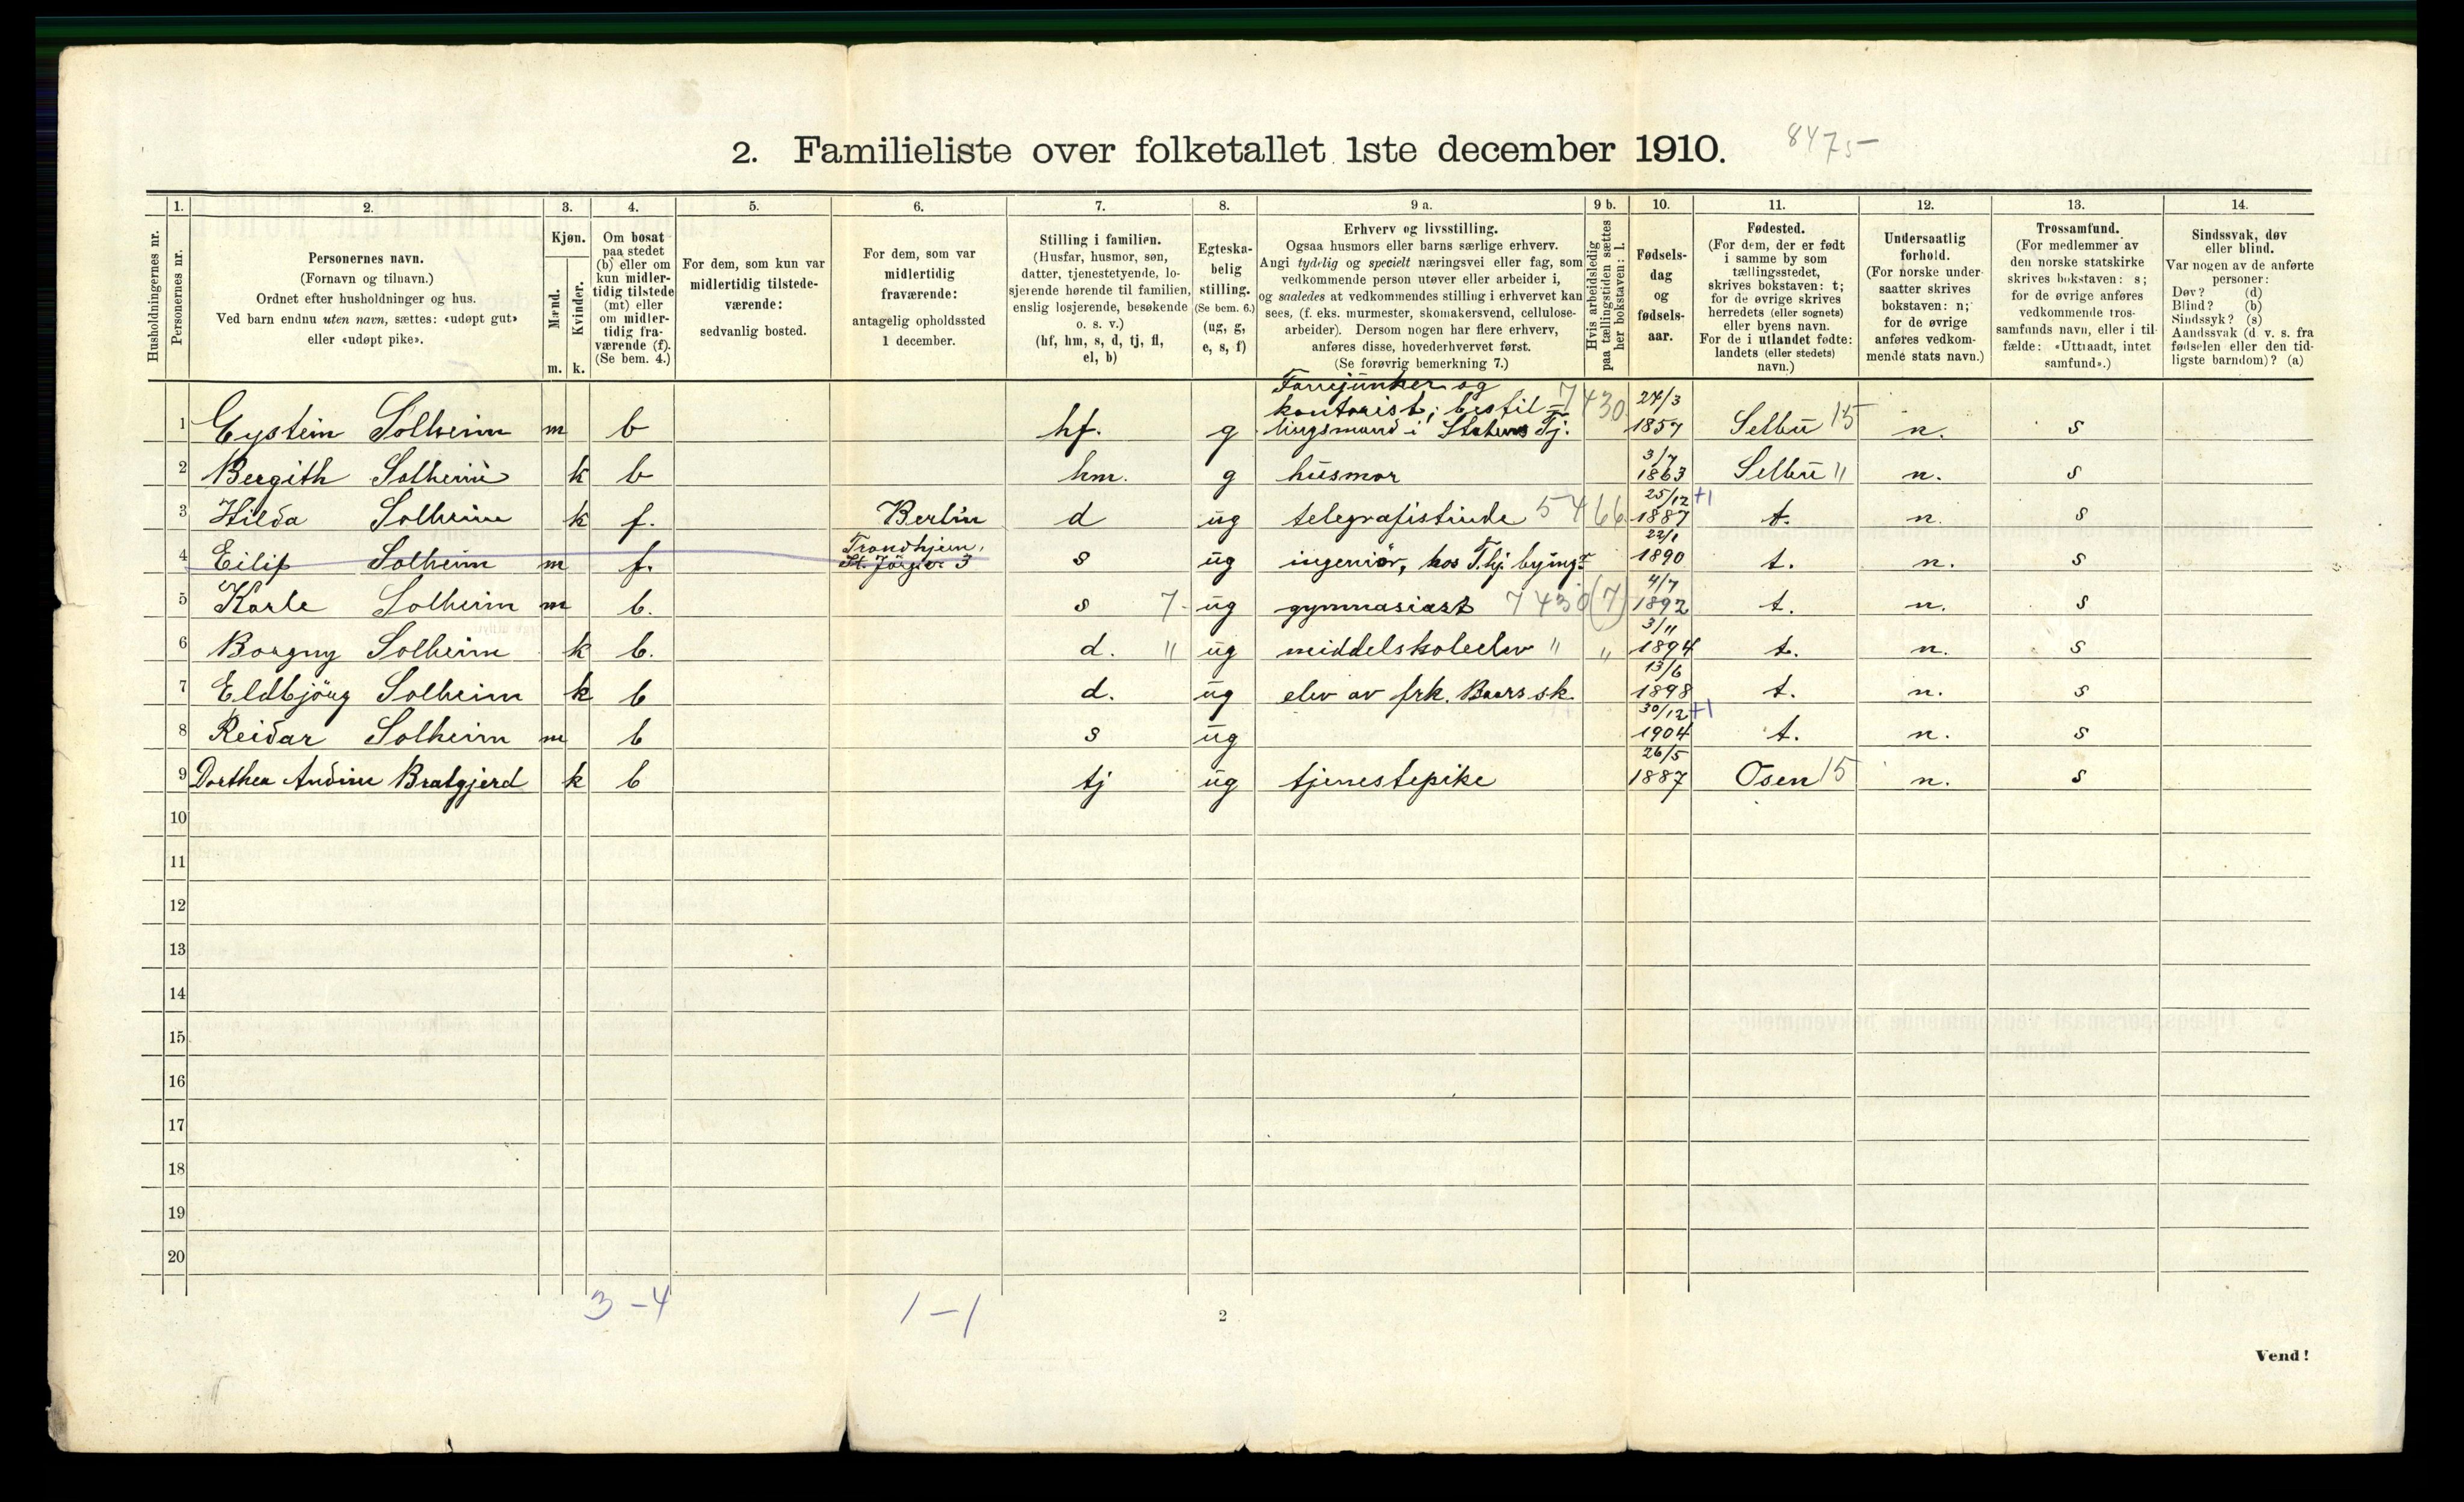 2. Familieliste over folketallet 1ste december 1910. 8475-
Husholdningernes nr.
1. Personernes nr.
2. Personernes navn.
(Fornavn og tilnavn.)
Ordnet efter husholdninger og hus.
Ved barn endnu uten navn, sættes: «udøpt gut»
eller «udøpt pike».
3. Kjøn.
Mænd. Kvinder.
m. k.
4. Om bosat
paa stedet
(b) eller om
kun midler-
tidig tilstede
(mt) eller
om midler-
tidig fra-
værende (f).
(Se bem. 4.)
5. For dem, som kun var
midlertidig tilstede-
værende:
sedvanlig bosted.
6. For dem, som var
midlertidig
fraværende:
antagelig opholdssted
1 december.
7. Stilling i familien.
(Husfar, husmor, søn,
datter, tjenestetyende, lo-
sjerende hørende til familien,
enslig losjerende, besøkende
o. s. v.)
(hf, hm, s, d, tj, fl,
el, b)
8. Egteska-
belig
stilling.
(Se bem. 6.)
(ug, g,
e, s, f)
9 a. Erhverv og livsstilling.
Ogsaa husmors eller barns særlige erhverv.
Angi tydelig og specielt næringsvei eller fag, som
vedkommende person utøver eller arbeider i,
og saaledes at vedkommendes stilling i erhvervet kan
sees, (f. eks. murmester, skomakersvend, cellulose-
arbeider). Dersom nogen har flere erhverv,
anføres disse, hovederhvervet først.
(Se forøvrig bemerkning 7.)
9 b. Hvis arbeidsledig
paa tællingstiden sættes
her bokstaven: l.
10. Fødsels-
dag
og
fødsels-
aar.
11. Fødested.
(For dem, der er født
i samme by som
tællingsstedet,
skrives bokstaven: t;
for de øvrige skrives
herredets (eller sognets)
eller byens navn.
For de i utlandet fødte:
landets (eller stedets)
navn.)
12. Undersaatlig
forhold.
(For norske under-
saatter skrives
bokstaven: n;
for de øvrige
anføres vedkom-
mende stats navn.)
13. Trossamfund.
(For medlemmer av
den norske statskirke
skrives bokstaven: s;
for de øvrige anføres
vedkommende tros-
samfunds navn, eller i til-
fælde: «Uttraadt, intet
samfund».)
14. Sindssvak, døv
eller blind.
Var nogen av de anførte
personer:
Døv? (d)
Blind? (b)
Sindssyk? (s)
Aandssvak (d. v. s. fra
fødselen eller den tid-
ligste barndom)? (a)
1 Eystein Solheim m b hf. g Fanejunker og kontorist; bestil=lingsmand i Statens Tj. 7430 24/3 1857 Selbu 15 n. s
2 Bergith Solheim k b hm. g husmor 3/7 1863 Selbu " n. s
3 Hilda Solheim k f. Berlin d ug telegrafistinde 5466 25/12 +1 1887 t. n. s
4 Eilif Solheim m f. Trondhjem, St. Jörgsv 3 s ug ingeniör, hos T.hj. bying 22/1 1890 t. n. s
5 Karle Solheim m b. s 7- ug gymnasiast 7430 (7) 4/7 1892 t. n. s
6 Borgny Solheim k b. d. " ug middelskoleelev " " 3/11 1894 t. n. s
7 Eldbjörg Solheim k b d. ug elev av frk. Baars sk. 13/6 1898 t. n. s
8 Reidar Solheim m b s ug 30/12 +1 1904 t. n. s
9 Dorthea Andine Bratgjerd k b tj ug tjenestepike 26/5 1887 Osen 15 n. s
10
11
12
13
14
15
16
17
18
19
20
3 - 4 1 - 1
2
Vend!